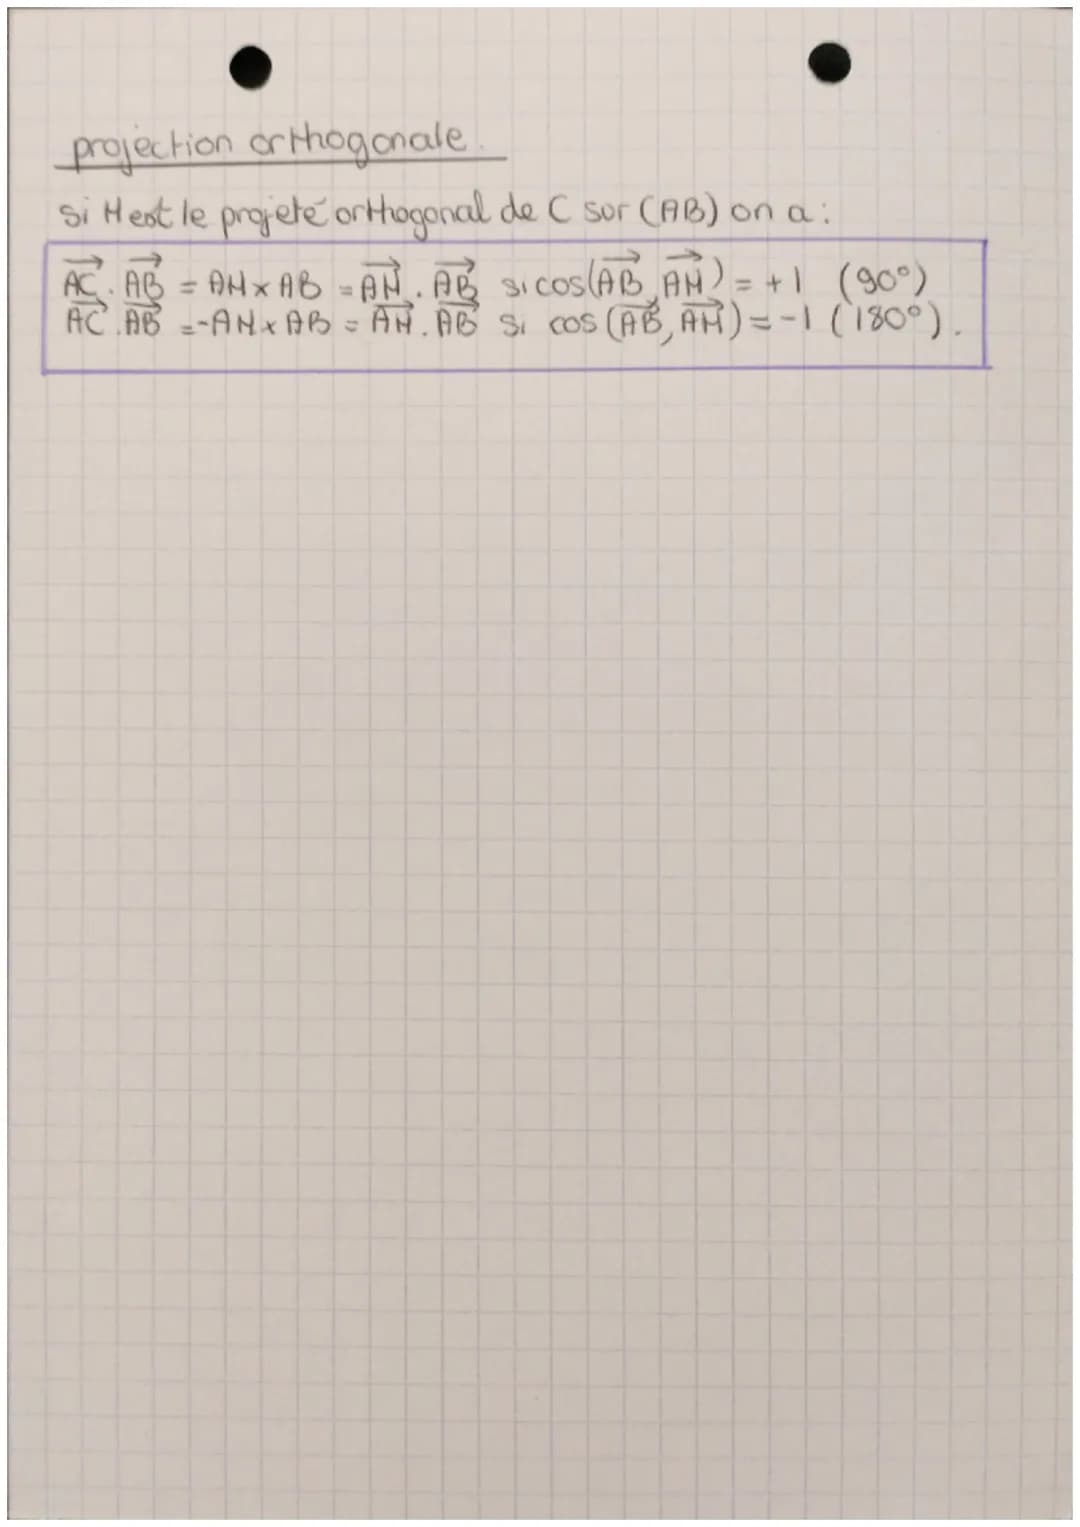 projection orthogonale.
si H est le projeté orthogonal de C sur (AB) on a :
AC⃗ . AB⃗ = AH x AB = AH⃗ . AB⃗ si cos(AB⃗, AH⃗) = +1 (90°)
AC⃗ . AB⃗ = -AH x AB = AH⃗ . AB⃗ si cos (AB⃗, AH⃗) = -1 (180°).